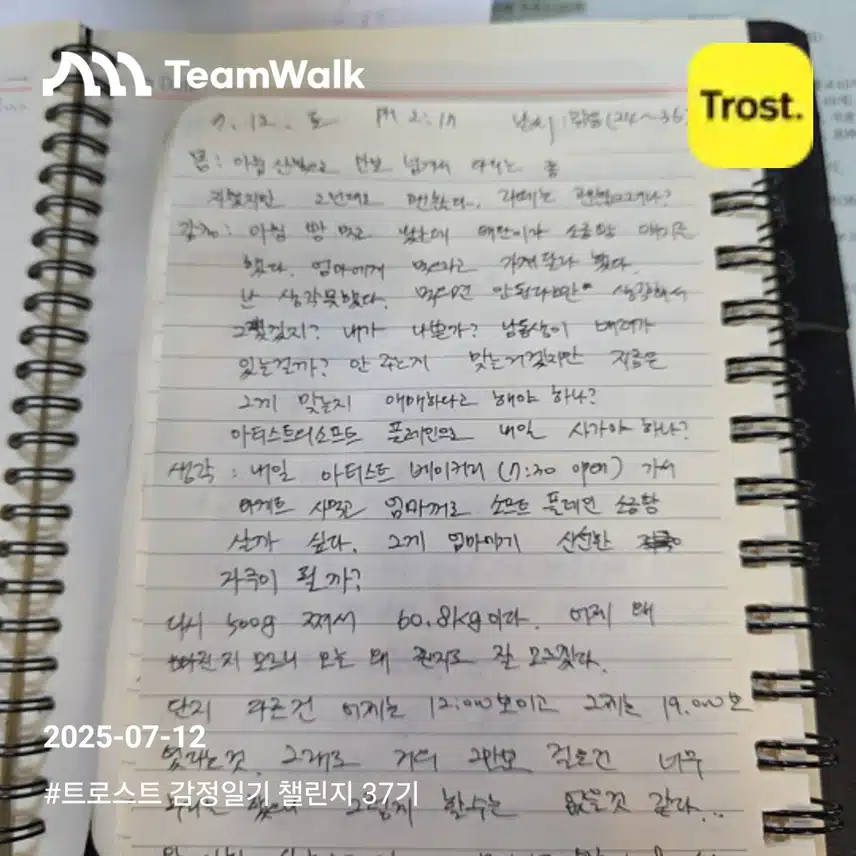 TeamWalk
Trost.
7. 12. 토 PM 2:17 날씨 : 맑음 (24~36)
몸 : 아침 산책으로 만보 넘게
했지만 2번째로
감정 : 아침 빵 먹고 남동생이 소금빵 얘기를
했다. 엄마에게 가져다 줬다.
난 생각못했다. 먹으면 안된다고만 생각해서
그랬겠지? 내가 나쁠까? 남동생이 배려가
있는걸까? 안 주는게 맞는거겠지만 지금은
그게 맞는지 애매하다고 해야 하나?
아티스트 소프트 플레인으로 내일 사가야 하나?
생각 : 내일 아티스트 베이커리 (7:30 open) 가서
바게트 사먹고 엄마꺼로 소프트 플레인 소금빵
살까 싶다. 그게 엄마에게 신선한
자극이 될까?
다시 500g 쪄서 60.8kg이다. 어제 왜
빠진지 모르니 오늘 왜 찐지도 잘 모르겠다.
단지 다른건 어제는 12,000보이고 그제는 19,000보
였다는것. 그래도 거의 2만보 걸은건 너무
그렇게 할수는 없을것 같다..
2025-07-12
#트로스트 감정일기 챌린지 37기